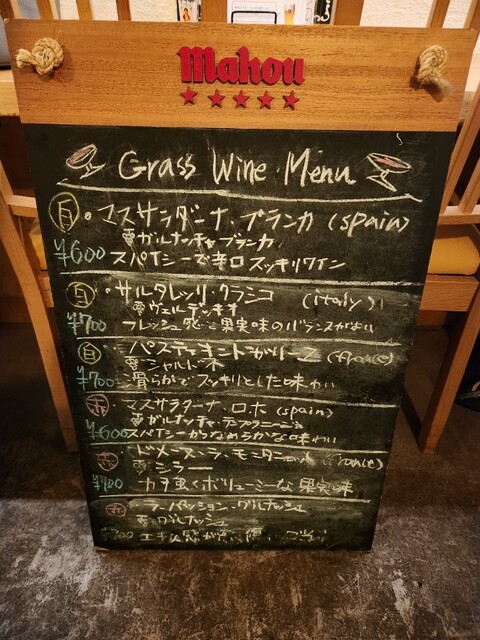 mahou
Grass Wine Menu
白 ・マスサラダーナ・ブランカ (spain)
ガルナッチャブランカ
¥600 スパイシーで辛口スッキリワイン
白 ・サルタレッリ・クラシコ (italy)
ヴェルディッキオ
¥700 フレッシュ 果実味のバランスがよい
白 (France)
シャルドネ
¥700 滑らかでスッキリとした味わい
赤 ・マスサラダーナ・ロホ (spain)
ガルナッチャ・テンプラニーニョ
¥600 スパイシーかつなめらかな味わい
赤 ・ドメーヌ・ラ・モンタニェット (France)
シラー
¥700 力強くボリューミーな果実味
赤 ・ラ・パッション・グルナッシュ
グルナッシュ
¥700